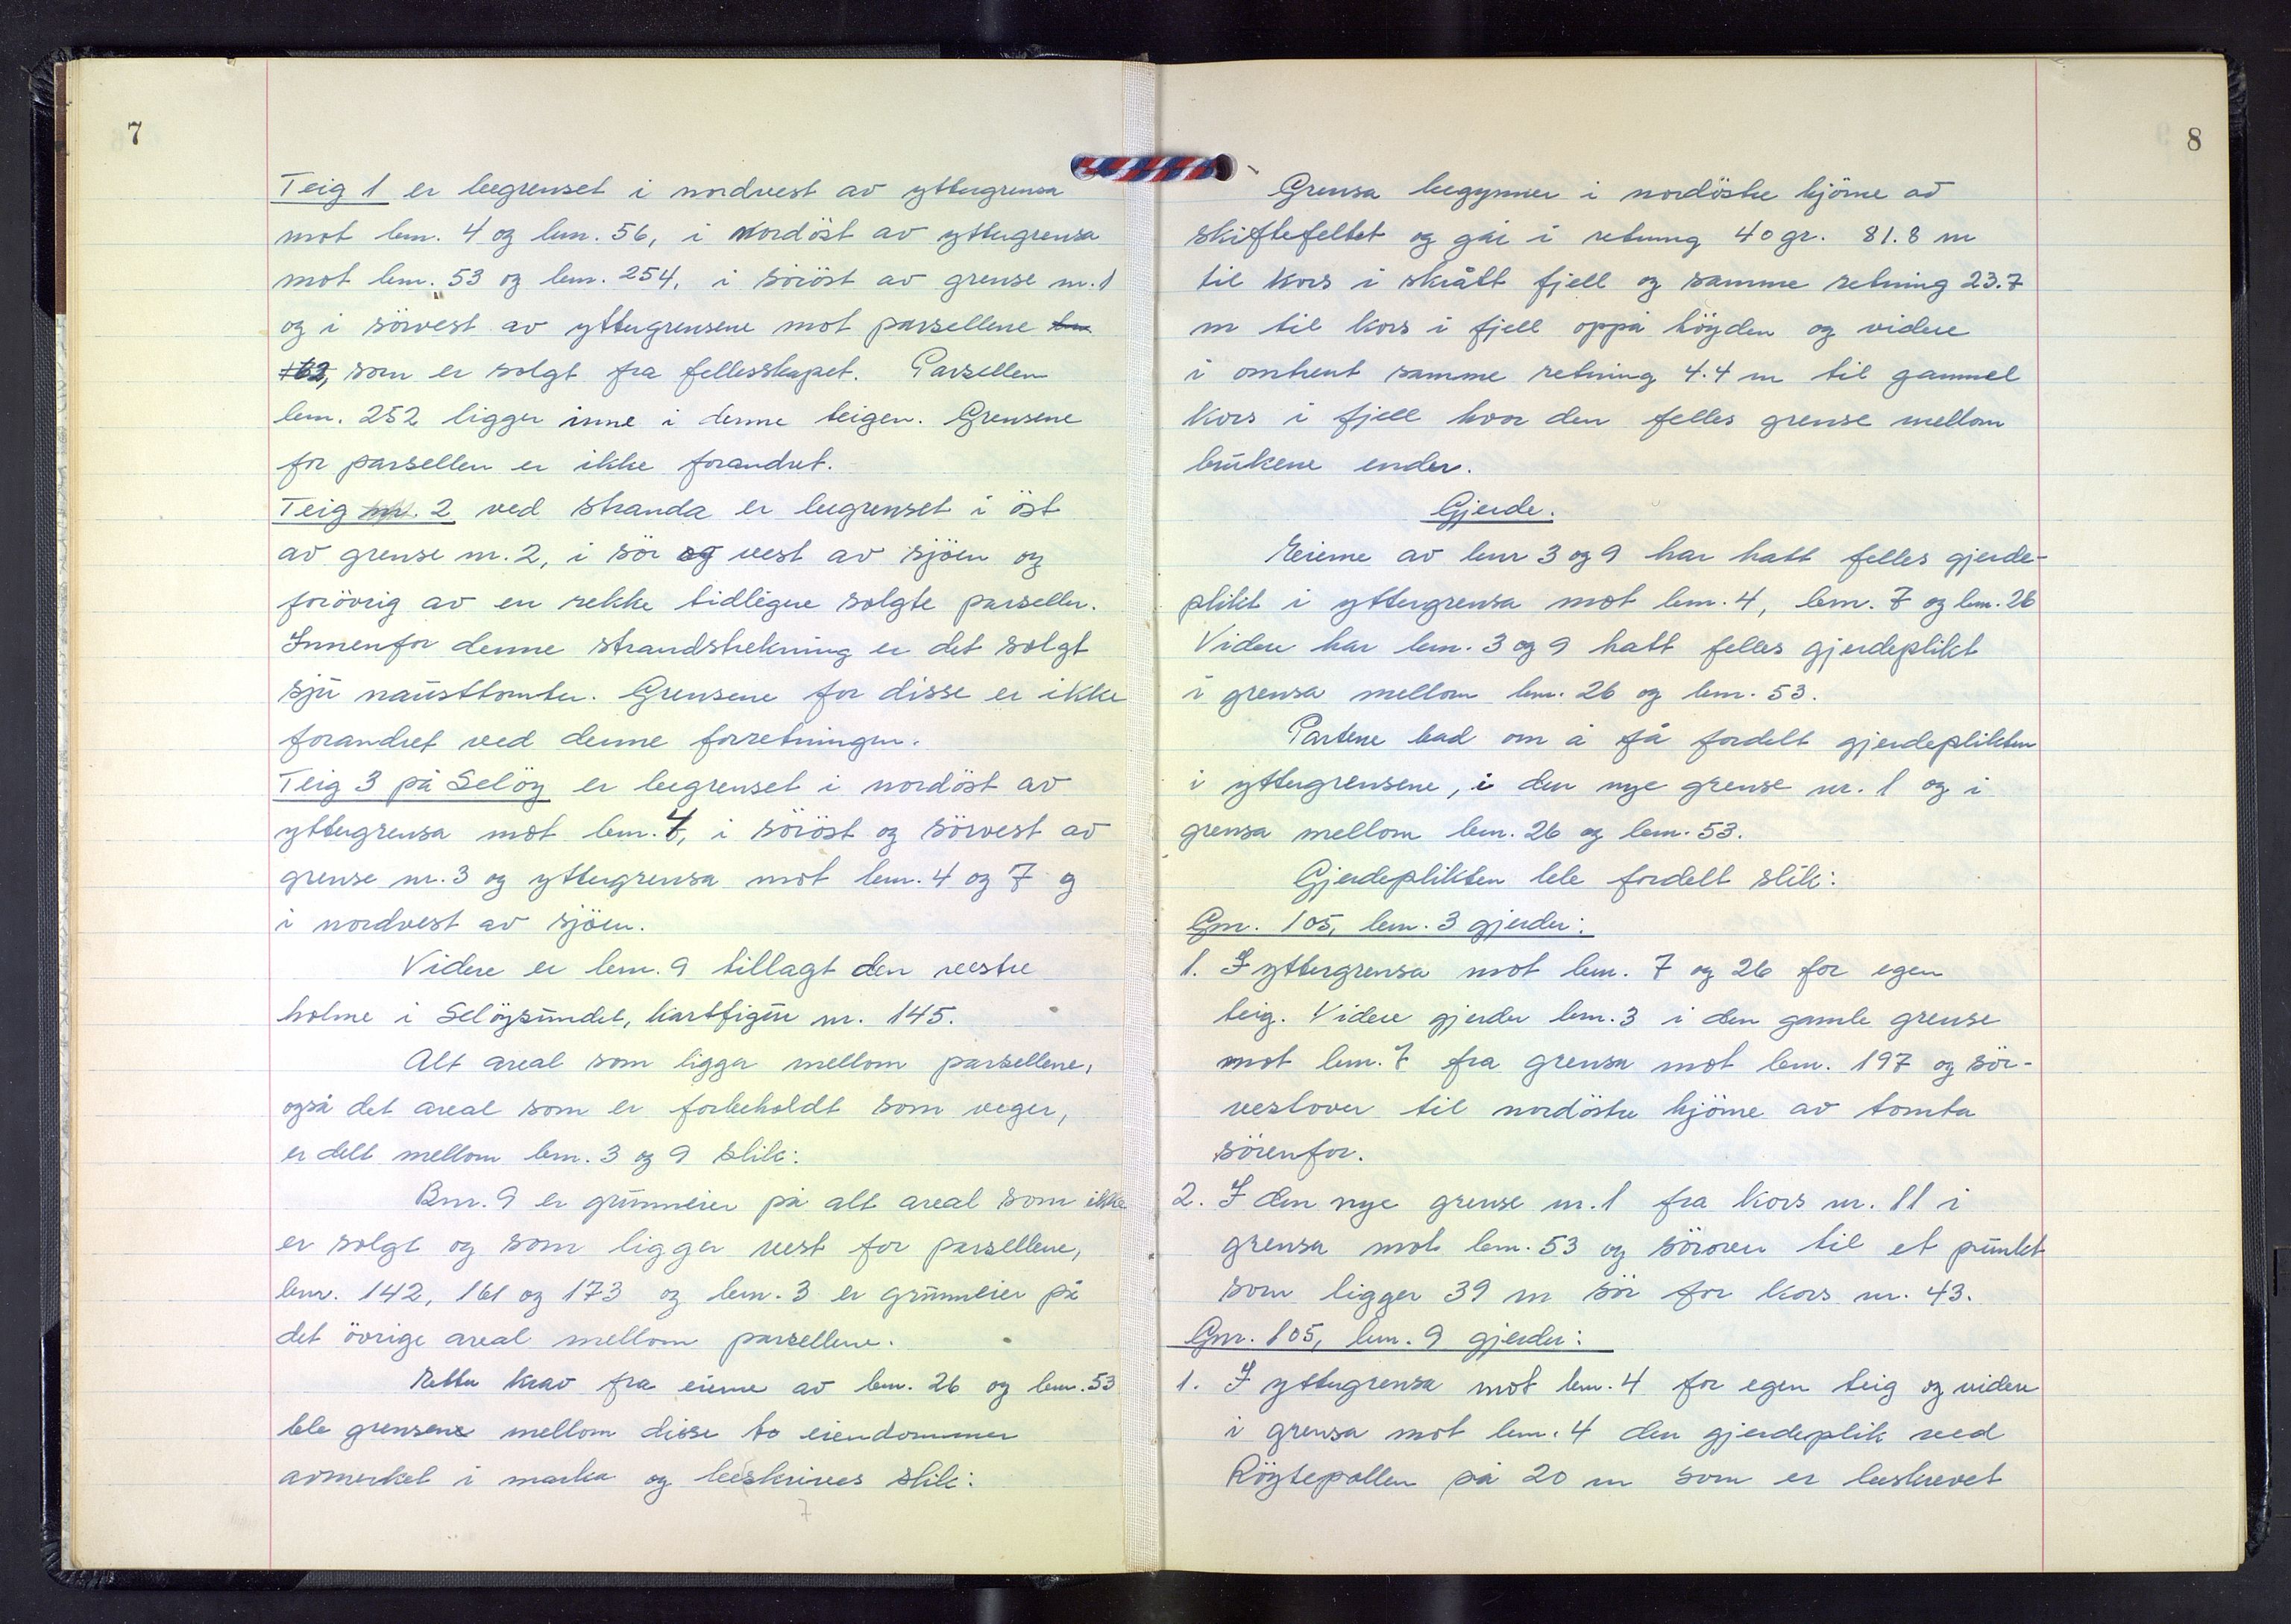 7
Teig 1 er begrenset i nordvest av yttergrensa
mot bnr. 4 og bnr. 56, i nordöst av yttergrensa
mot bnr. 53 og bnr. 254, i söröst av grense nr. 1
og i sörvest av yttergrensene mot parsellene
som er solgt fra fellesskapet. Parsellen
bnr. 252 ligger inne i denne teigen. Grensene
for parsellen er ikke forandret.
Teig nr. 2 ved stranda er begrenset i öst
av grense nr. 2, i sör og vest av sjöen og
forövrig av en rekke tidligere solgte parseller.
Innenfor denne strandstrekning er det solgt
sju nausttomter. Grensene for disse er ikke
forandret ved denne forretningen.
Teig 3 på Selöy er begrenset i nordöst av
yttergrensa mot bnr. 4, i söröst og sörvest av
grense nr. 3 og yttergrensa mot bnr. 4 og 7 og
i nordvest av sjöen.
Videre er bnr. 9 tillagt den vestre
holme i Selöysundet, kartfigur nr. 145.
Alt areal som ligger mellom parsellene,
også det areal som er forbeholdt som veger,
er delt mellom bnr. 3 og 9 slik:
Bnr. 9 er grunneier på alt areal som ikke
er solgt og som ligger vest for parsellene,
bnr. 142, 161 og 173 og bnr. 3 er grunneier på
det övrige areal mellom parsellene.
Etter krav fra eierne av bnr. 26 og bnr. 53
ble grensene mellom disse to eiendommer
avmerket i marka og beskrives slik:
7
8
Grensa begynner i nordöstre hjörne av
skiftefeltet og går i retning 40 gr. 81.8 m
til kors i skrått fjell og samme retning 23.7
m til kors i fjell oppå höyden og videre
i omtrent samme retning 4.4 m til gammel
kors i fjell hvor den felles grense mellom
brukene ender.
Gjerde.
Eierne av bnr 3 og 9 har hatt felles gjerde-
plikt i yttergrensa mot bnr. 4, bnr. 7 og bnr. 26
Videre har bnr. 3 og 9 hatt felles gjerdeplikt
i grensa mellom bnr. 26 og bnr. 53.
Partene bad om å få fordelt gjerdeplikten
i yttergrensene, i den nye grense nr. 1 og i
grensa mellom bnr. 26 og bnr. 53.
Gjerdeplikten ble fordelt slik:
Gnr. 105, bnr. 3 gjerder:
1. I yttergrensa mot bnr. 7 og 26 for egen
teig. Videre gjerder bnr. 3 i den gamle grense
mot bnr. 7 fra grensa mot bnr. 197 og sör-
vestover til nordöstre hjörne av tomta
sörenfor.
2. I den nye grense nr. 1 fra kors nr. 11 i
grensa mot bnr. 53 og söröver til et punkt
som ligger 39 m sör for kors nr. 43.
Gnr. 105, bnr. 9 gjerder:
1. I yttergrensa mot bnr. 4 for egen teig og videre
i grensa mot bnr. 4 den gjerdeplik ved
Röytepollen på 20 m som er beskrevet